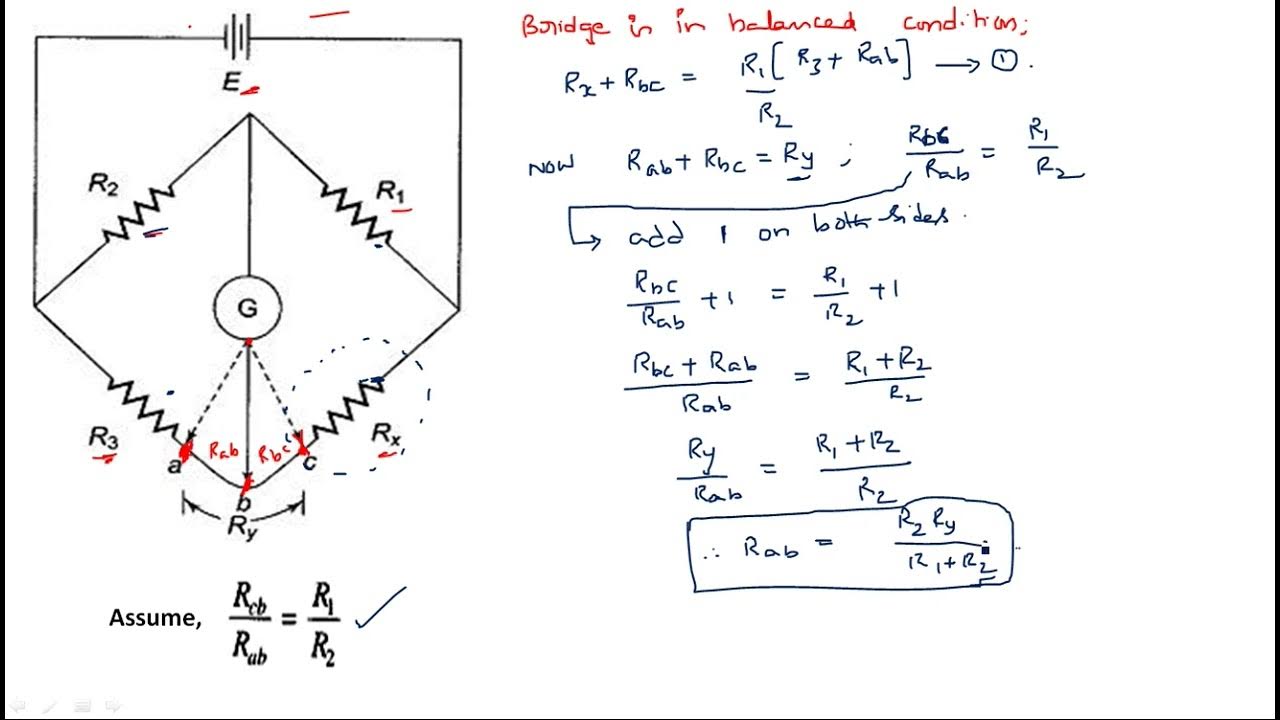 E
R2
R1
G
R3
Rx
a
Rab
Rbc
c
b
Ry
Assume, Rcb/Rab = R1/R2
Bridge is in balanced condition;
Rx + Rbc = R1/R2 [R3 + Rab] → ①.
now Rab + Rbc = Ry ; Rbc/Rab = R1/R2
↳ add 1 on both sides.
Rbc/Rab + 1 = R1/R2 + 1
Rbc + Rab/Rab = R1 + R2/R2
Ry/Rab = R1 + R2/R2
∴ Rab = R2 Ry/R1 + R2